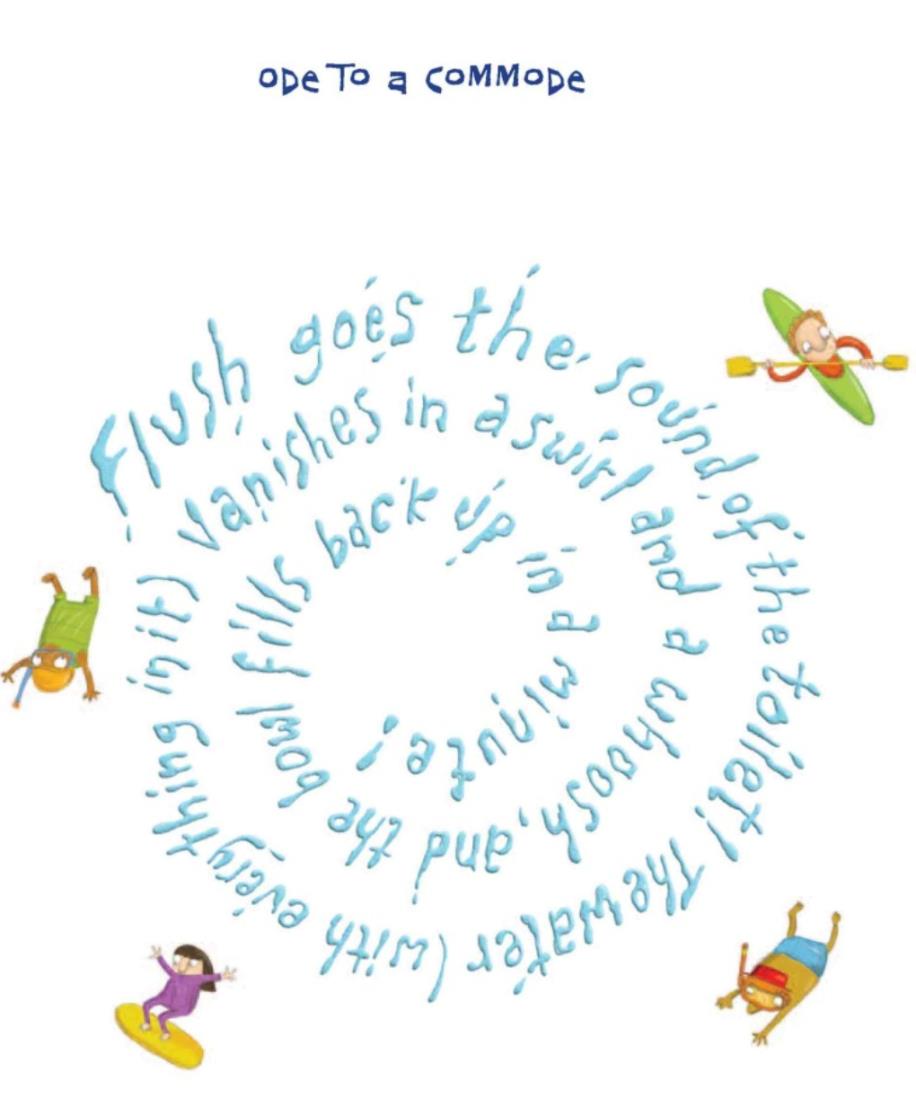 ODE TO a COMMODE
Flush goes the sound of the toilet! The water (with everything in it) vanishes in a swirl and a whoosh, and the bowl fills back up in a minute!